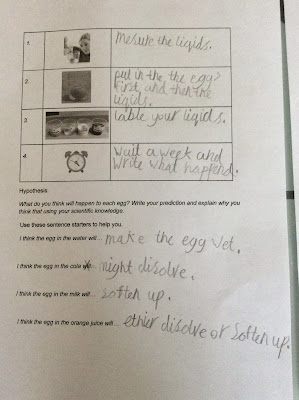 1.
Mesure the liqids.
2.
put in the, the egg?
first, and then the
liqids.
3
lable your liqids.
4.
wait a week and
write what happend.
Hypothesis
What do you think will happen to each egg? Write your prediction and explain why you
think that using your scientific knowledge.
Use these sentence starters to help you.
I think the egg in the water will... make the egg wet.
I think the egg in the coke might disolve.
I think the egg in the milk will... soften up.
I think the egg in the orange juice will... ethier disolve or soften up.